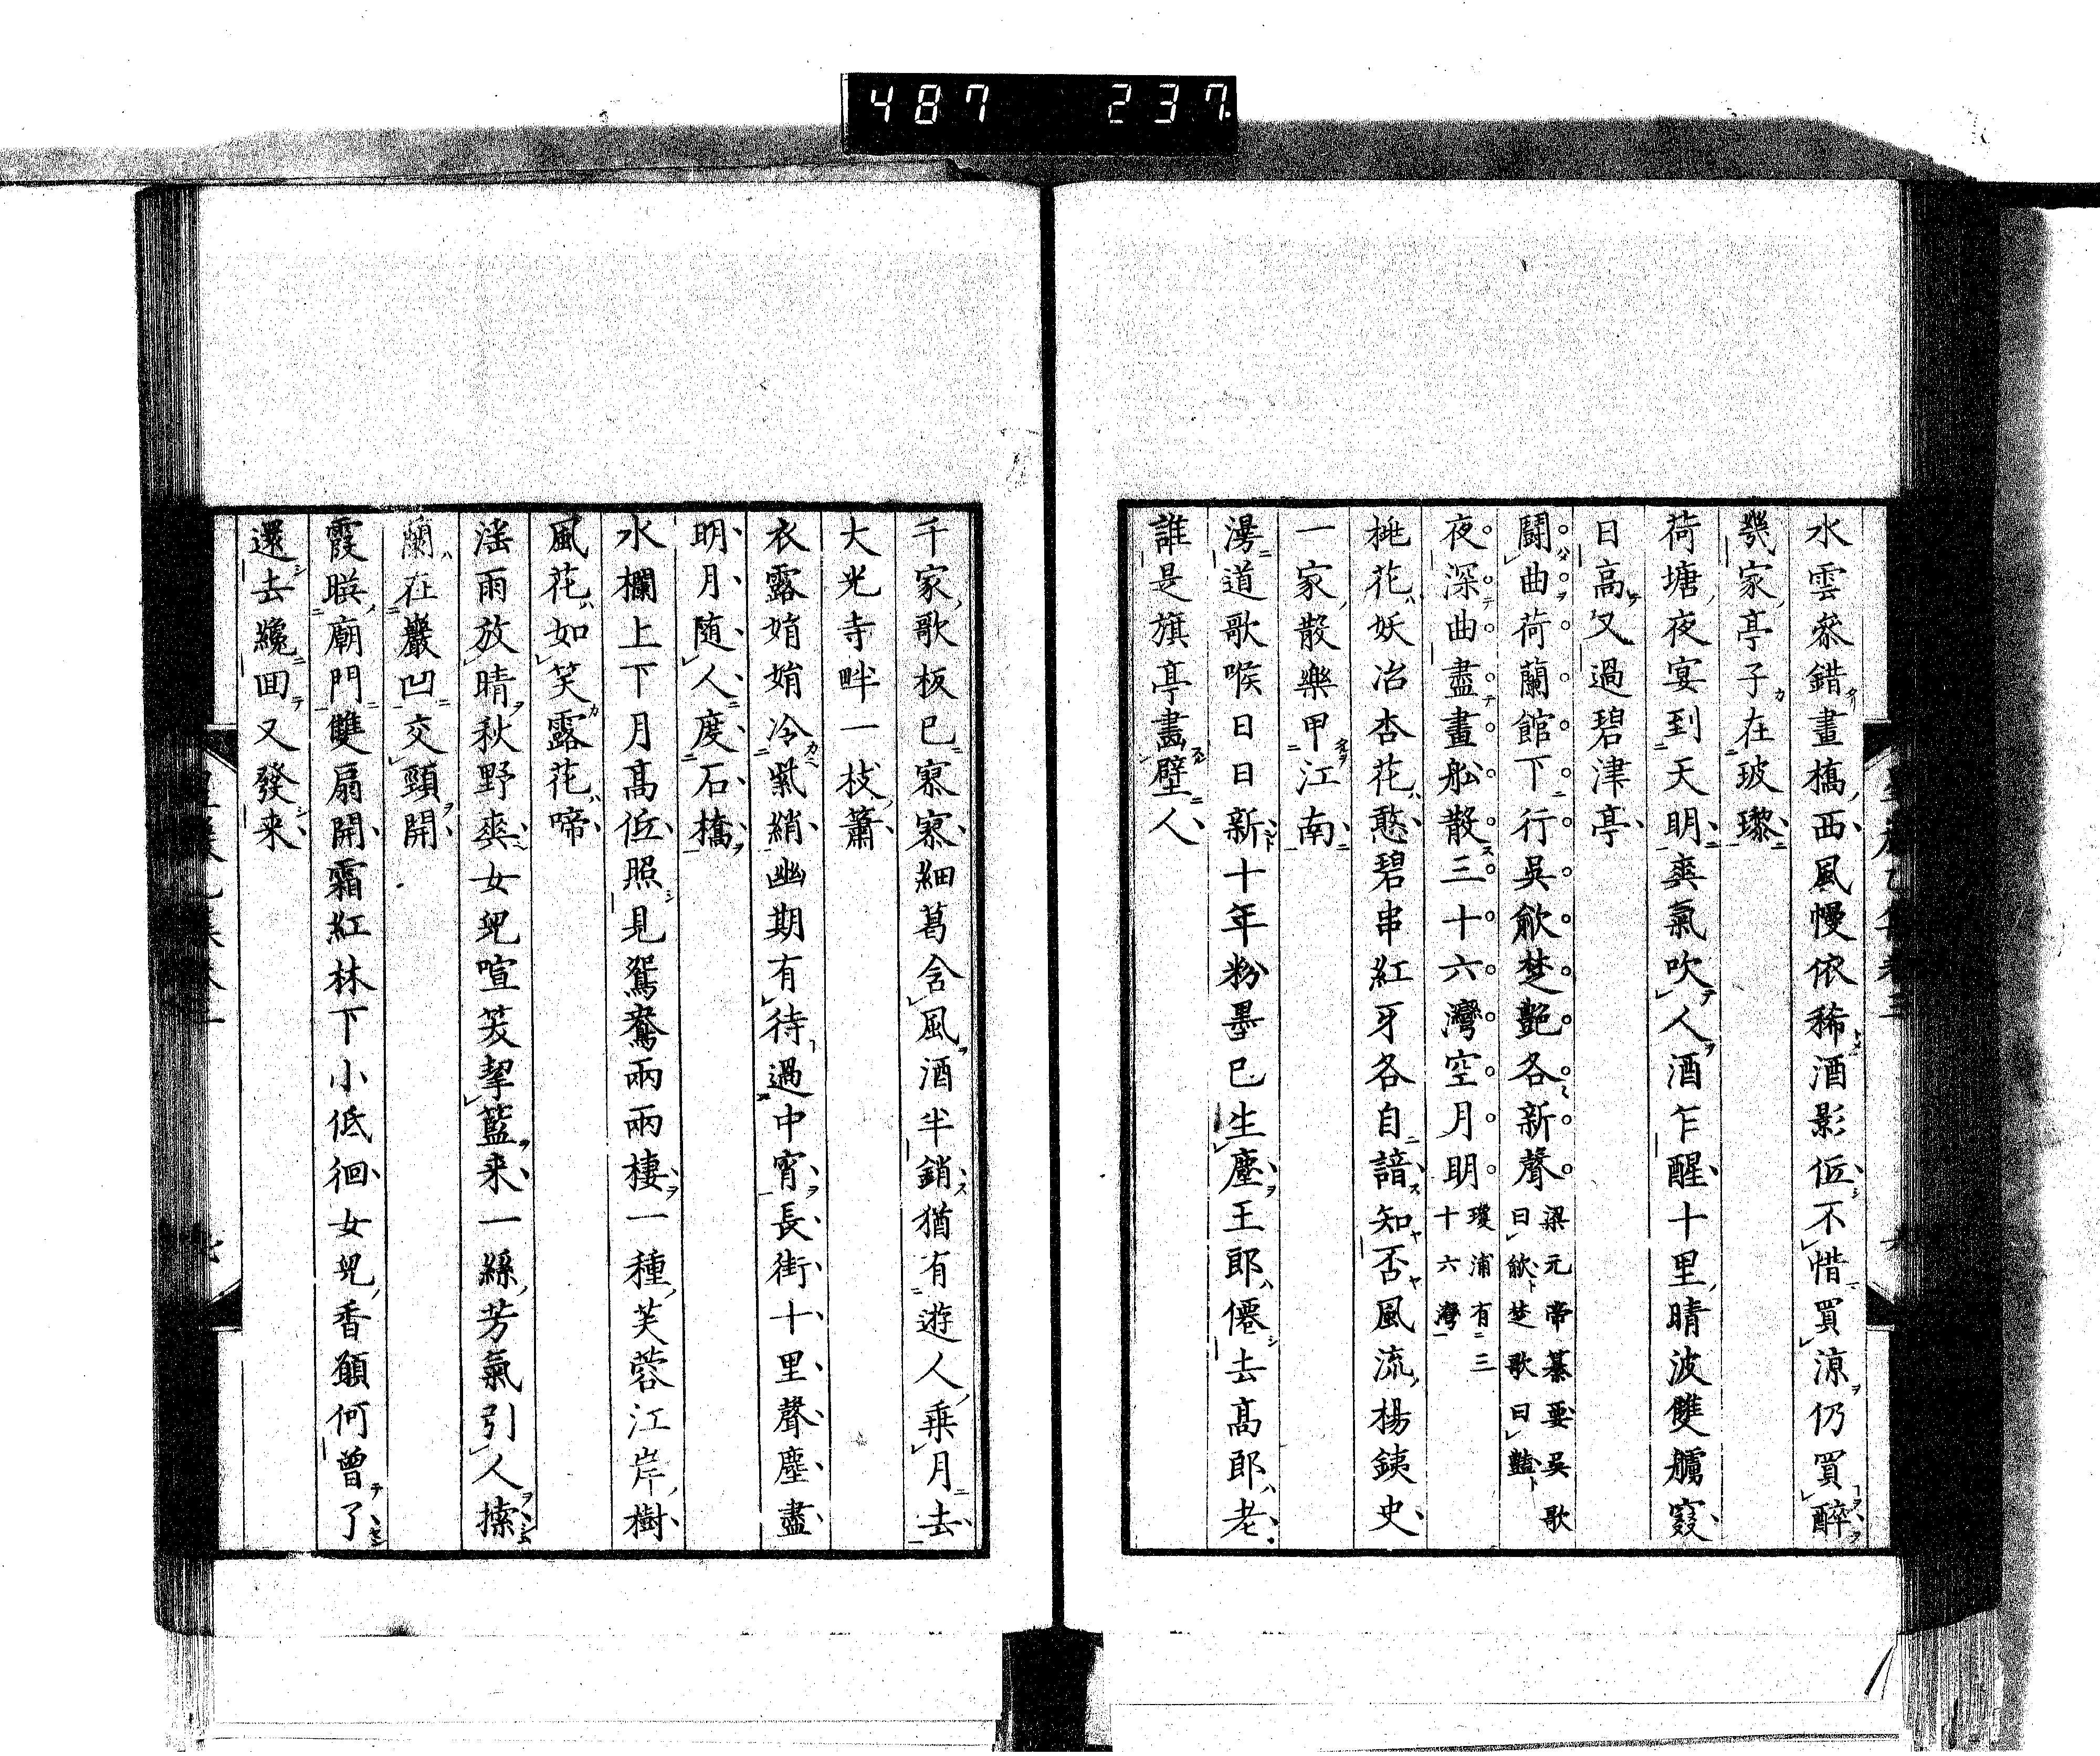 487 237
水雲參錯畫橋西風幔依稀酒影低不惜買涼仍買醉
幾家亭子在玻瓈
荷塘夜宴到天明爽氣吹人酒乍醒十里晴波雙艣窽
日高又過碧津亭
鬪曲荷蘭館下行吳歈楚艶各新聲梁元帝纂要吳歌
曰歈楚歌曰豔
夜深曲盡畫舩散三十六灣空月明瓊浦有三
十六灣
桃花妖冶杏花憨碧串紅牙各自諳知否風流楊銕史
一家散樂甲江南
灣道歌喉日日新十年粉墨已生塵王郎僊去高郎老
誰是旗亭畫壁人
千家歌板已寥寥細葛含風酒半銷猶有遊人乘月去
大光寺畔一枝簫
衣露娟娟冷紫綃幽期有待過中宵長街十里聲塵盡
明月随人度石橋
水欄上下月高低照見鴛鴦兩兩棲一種芙蓉江岸樹
風花如笑露花啼
滛雨放晴秋野爽女兒喧笑挈籃来一縣芳氣引人搡
蘭在巖凹交頸開
霞暎廟門雙扇開霜紅林下小低徊女兒香願何曾了
還去纔囬又發来